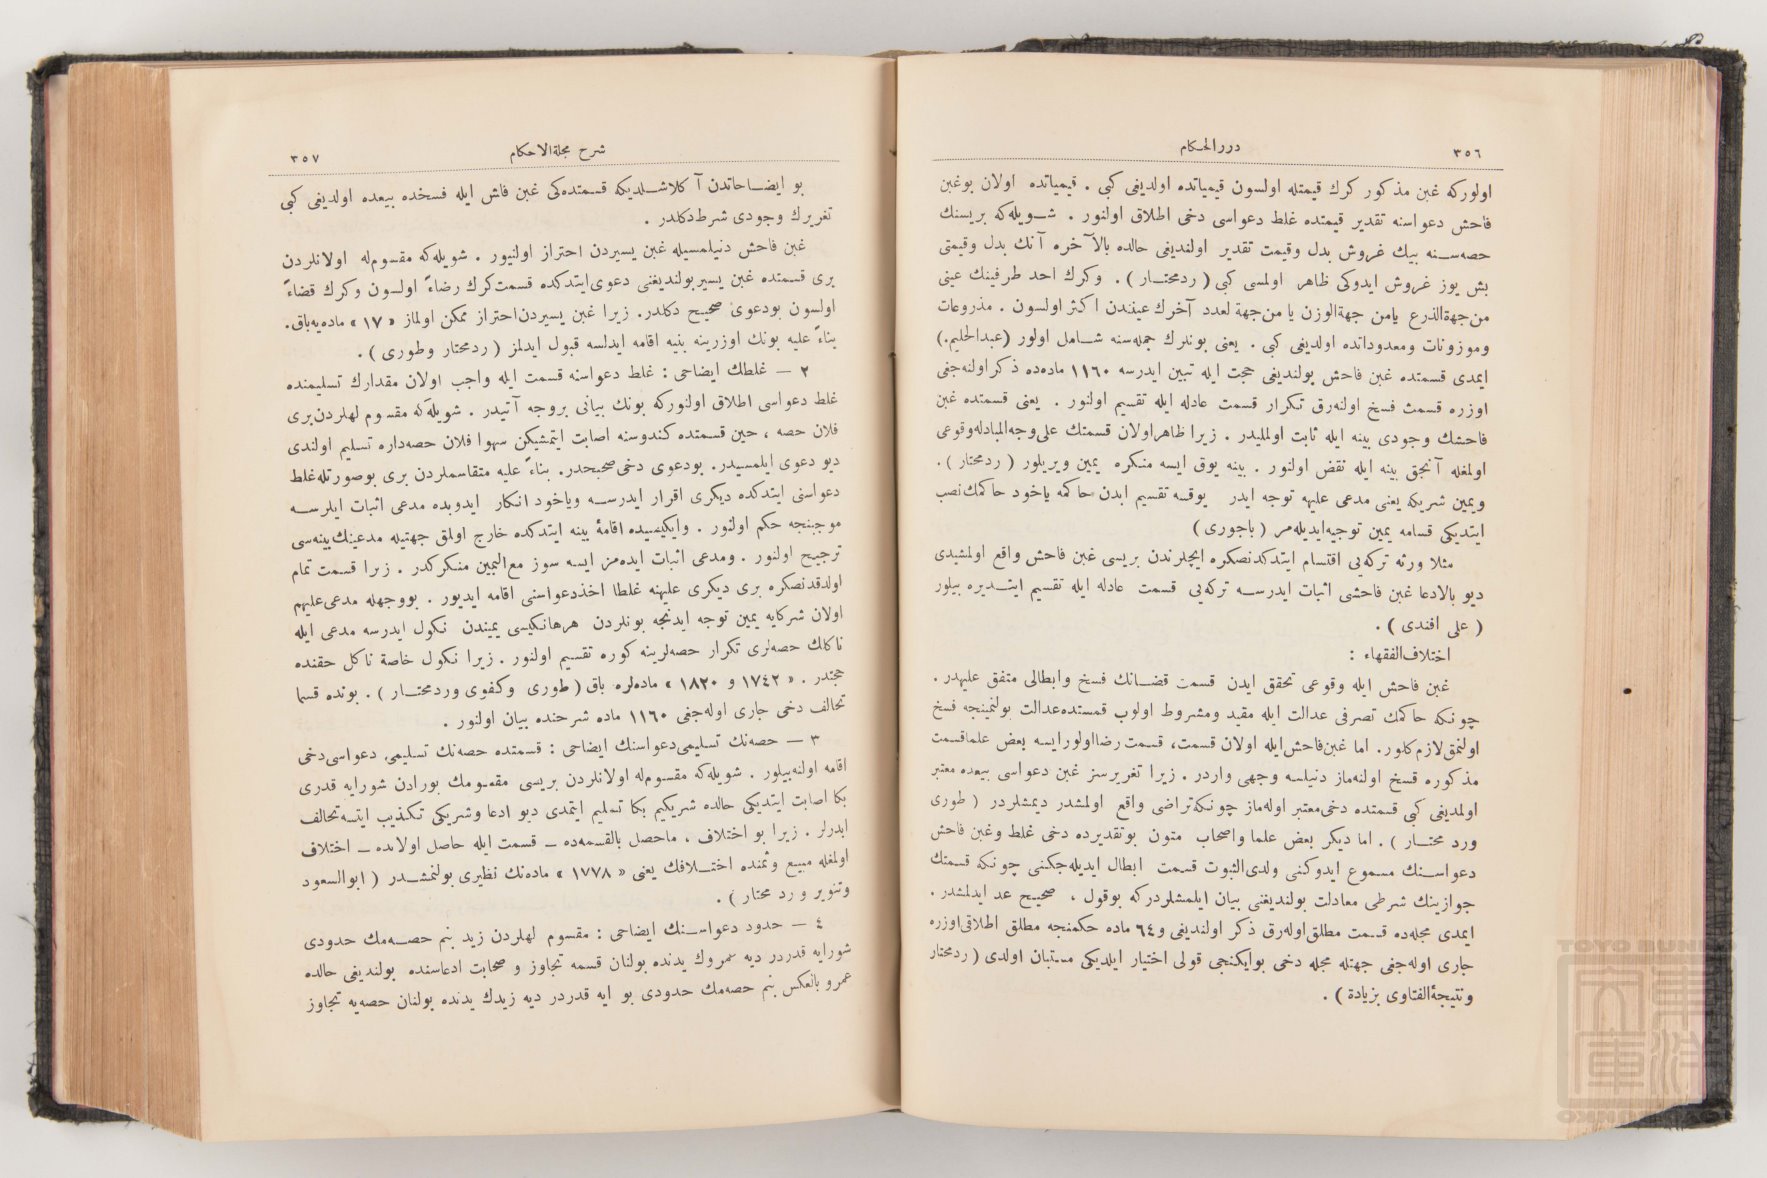 ٣٥٦
دررالحكام
اولوركه غبن مذكور كرك قيمتله اولسون قيمياتده اولديغى كبى . قيمياتده اولان بوغبن
فاحش دعواسنه تقدير قيمتده غلط دعواسى دخى اطلاق اولنور . شويله‌كه بريسنك
حصه‌سنه بيك غروش بدل وقيمت تقدير اولنديغى حالده بالآخره آنك بدل وقيمتى
بش يوز غروش ايدوكى ظاهر اولمسى كبى ( ردمختار ) . وكرك احد طرفينك عينى
من‌جهةالذرع يامن جهةالوزن يا من‌جهة لعدد آخرك عيندن اكثر اولسون . مذروعات
وموزونات ومعدوداتده اولديغى كبى . يعنى بونلرك جمله‌سنه شامل اولور (عبدالحليم.)
ايمدى قسمتده غبن فاحش بولنديغى حجت ايله تبين ايدرسه ١١٦٠ ماده‌ده ذكراولنه‌جغى
اوزره قسمت فسخ اولنه‌رق تكرار قسمت عادله ايله تقسيم اولنور . يعنى قسمتده غبن
فاحشك وجودى بينه ايله ثابت اولمليدر . زيرا ظاهراولان قسمتك على‌وجه‌المبادله‌وقوعى
اولمغله آنجق بينه ايله نقض اولنور . بينه يوق ايسه منكره يمين ويريلور ( ردمختار ) .
ويمين شريكه يعنى مدعى عليهه توجه ايدر يوقسه تقسيم ايدن حاكمه ياخود حاكمك نصب
ايتديكى قسامه يمين توجيه‌ايديله‌مز ( باجورى )
مثلا ورثه تركه‌يى اقتسام ايتدكدنصكره ايچلرندن بريسى غبن فاحش واقع اولمشيدى
ديو بالادعا غبن فاحشى اثبات ايدرسه تركه‌يى قسمت عادله ايله تقسيم ايتديره بيلور
( على افندى ) .
اختلاف‌الفقهاء :
غبن فاحش ايله وقوعى تحقق ايدن قسمت قضانك فسخ وابطالى متفق عليهدر .
چونكه حاكمك تصرفى عدالت ايله مقيد ومشروط اولوب قسمتده‌عدالت بولنمينجه فسخ
اولنمق‌لازم‌كلور. اما غبن‌فاحش‌ايله اولان قسمت، قسمت رضااولورايسه بعض علماقسمت
مذكوره فسخ اولنه‌ماز دنيلسه وجهى واردر . زيرا تغريرسز غبن دعواسى بيعده معتبر
اولمديغى كبى قسمتده دخى‌معتبر اوله‌ماز چونكه‌تراضى واقع اولمشدر ديمشلردر ( طورى
ورد مختار ) . اما ديكر بعض علما واصحاب متون بوتقديرده دخى غلط وغبن فاحش
دعواسنك مسموع ايدوكنى ولدى‌الثبوت قسمت ابطال ايديله‌جكنى چونكه قسمتك
جوازينك شرطى معادلت بولنديغنى بيان ايلمشلردركه بوقول ، صحيح عد ايدلمشدر .
ايمدى مجله‌ده قسمت مطلق‌اوله‌رق ذكر اولنديغى و٦٤ ماده حكمنجه مطلق اطلاقى‌اوزره
جارى اوله‌جغى جهتله مجله دخى بوايكنجى قولى اختيار ايلديكى مستبان اولدى ( ردمختار
ونتيجةالفتاوى بزيادة ) .
٣٥٧
شرح مجلةالاحكام
بو ايضاحاتدن آكلاشلديكه قسمتده‌كى غبن فاش ايله فسخده بيعده اولديغى كبى
تغريرك وجودى شرط‌دكلدر .
غبن فاحش دنيلمسيله غبن يسيردن احتراز اولنيور . شويله‌كه مقسوم‌له اولانلردن
برى قسمتده غبن يسيربولنديغنى دعوى‌ايتدكده قسمت‌كرك رضاءً اولسون وكرك قضاءً
اولسون بودعوىٰ صحيح دكلدر. زيرا غبن يسيردن‌احتراز ممكن اولماز « ١٧ » ماده‌يه‌باق.
بناءً عليه بونك اوزرينه بنيه اقامه ايدلسه قبول ايدلمز ( ردمختار وطورى ) .
٢ — غلطك ايضاحى : غلط دعواسنه قسمت ايله واجب اولان مقدارك تسليمنده
غلط دعواسى اطلاق اولنوركه بونك بيانى بروجه آتيدر . شويله‌كه مقسوم لهلردن‌برى
فلان حصه ، حين قسمتده كندوسنه اصابت ايتمشيكن سهوا فلان حصه‌داره تسليم اولندى
ديو دعوى ايلمسيدر. بودعوى دخى‌صحيحدر. بناءً عليه متقاسملردن برى بوصورتله‌غلط
دعواسنى ايتدكده ديكرى اقرار ايدرسه وياخود انكار ايدوبده مدعى اثبات ايلرسه
موجبنجه حكم اولنور . وايكيسيده اقامۀ بينه ايتدكده خارج اولمق جهتيله مدعينك‌بينه‌سى
ترجيح اولنور . ومدعى اثبات ايده‌مز ايسه سوز مع‌اليمين منكركدر . زيرا قسمت تمام
اولدقدنصكره برى ديكرى عليهنه غلطا اخذدعواسنى اقامه ايديور . بووجهله مدعى‌عليهم
اولان شركايه يمين توجه ايدنجه بونلردن هرهانكيسى يميندن نكول ايدرسه مدعى ايله
ناكلك حصه‌لرى تكرار حصه‌لرينه كوره تقسيم اولنور . زيرا نكول خاصة ناكل حقنده
حجتدر . « ١٧٤٢ و ١٨٢٠ » ماده‌لره باق ( طورى وكفوى وردمختار ) . بونده قسما
تحالف دخى جارى اوله‌جغى ١١٦٠ ماده شرحنده بيان اولنور .
٣ — حصه‌نك تسليمى‌دعواسنك ايضاحى : قسمتده حصه‌نك تسليمى دعواسى‌دخى
اقامه اولنه‌بيلور . شويله‌كه مقسوم‌له اولانلردن بريسى مقسومك بورادن شورايه قدرى
بكا اصابت ايتديكى حالده شريكيم بكا تسليم ايتمدى ديو ادعا وشريكى تكذيب ايتسه‌تحالف
ايدرلر . زيرا بو اختلاف ، ماحصل بالقسمه‌ده — قسمت ايله حاصل اولانده — اختلاف
اولمغله مبيع وثمنده اختلافك يعنى « ١٧٧٨ » ماده‌نك نظيرى بولنمشدر ( ابوالسعود
وتنوير و رد مختار ) .
٤ — حدود دعواسنك ايضاحى : مقسوم لهلردن زيد بنم حصه‌مك حدودى
شورايه قدردر ديه عمروك يدنده بولنان قسمه تجاوز و صحابت ادعاسنده بولنديغى حالده
عمرو بالعكس بنم حصه‌مك حدودى بو ايه قدردر ديه زيدك يدنده بولنان حصه‌يه تجاوز
TOYO BUNKO
東洋文庫
TOYO BUNKO